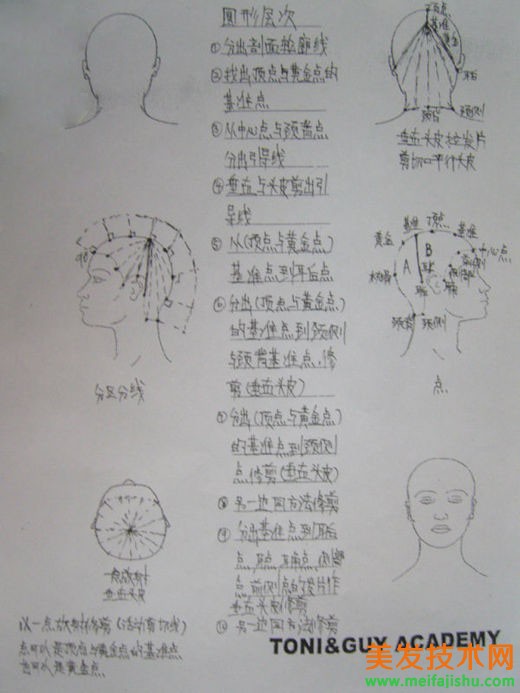 圆形层次
①分出剖面轮廓线
②找出顶点与黄金点的
基准点
③从中心点与颈背点
分出引导线
④垂直与头皮剪出引
导线
⑤从(顶点与黄金点)
基准点到耳后点
⑥分出(顶点与黄金点)
的基准点到颈侧
与颈背基准点,修
剪(垂直头皮)
⑦分出(顶点与黄金点)
的基准点到颈侧
点修剪(垂直头皮)
⑧另一边同方法修剪
⑨分出基准点到耳后
点
点前侧点的发片作
垂直头皮修剪
⑩另一边同方法修剪
顶点
基准
黄金
颈背
颈侧
垂直头皮拉发片
剪切口平行头皮
90°
分区分线
黄金
基准
顶点
基准
中心点
A
B
颈背
颈侧
点
一点放射
垂直头皮
以一点放射修剪(活动剪切线)
点可以是顶点与黄金点的基准点
也可以是黄金点
TONI&GUY ACADEMY
美发技术网
www.meifajishu.com